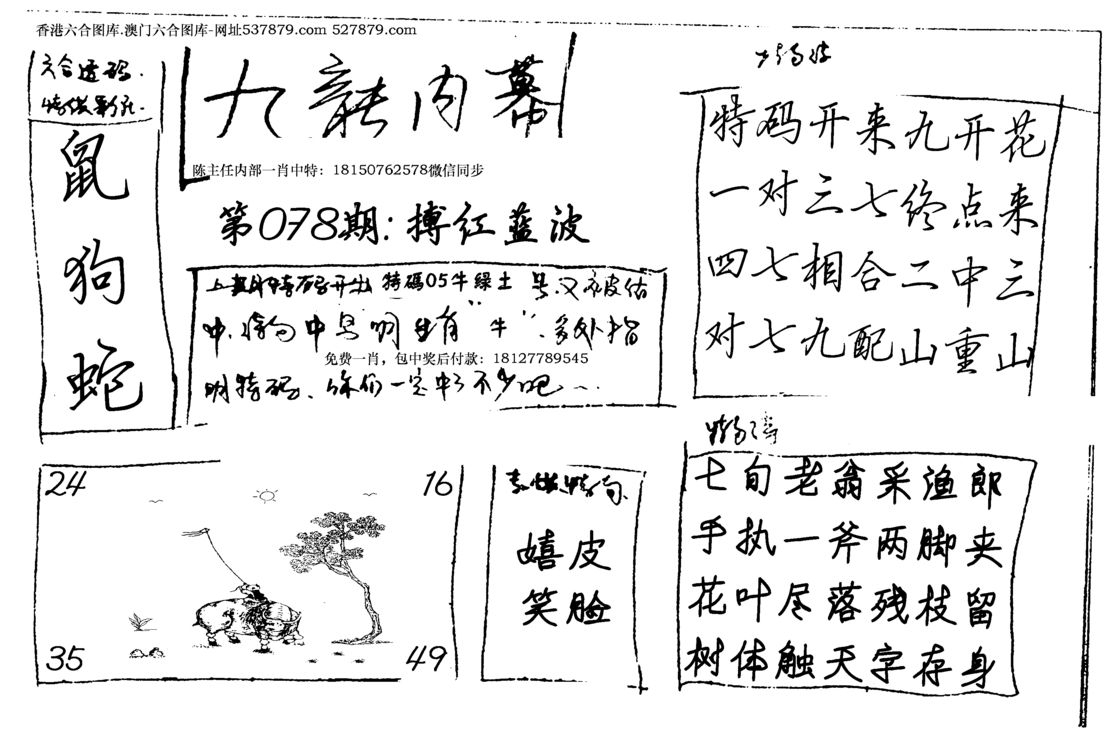 香港六合图库.澳门六合图库-网址537879.com 527879.com
六合透码.
鼠
狗
蛇
九龍内幕
陈主任内部一肖中特：18150762578微信同步
第078期：搏红蓝波
特碼05牛绿土
"牛"
免费一肖，包中奖后付款：18127789545
明特码、你们一定中了不少吧
特码开来九开花
一对三七终点来
四七相合二中三
对七九配山重山
24
16
35
49
嬉皮
笑脸
七旬老翁采渔郎
手执一斧两脚夹
花叶尽落残枝留
树体触天字存身